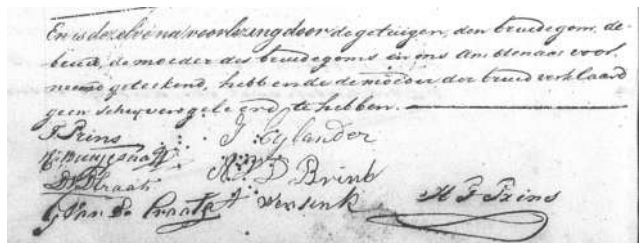 En is dezelve na voorlezing door de getuigen, den bruidegom, de
bruid, de moeder des bruidegoms en ons Ambtenaar voor-
noemd geteekend, hebbende de moeder der bruid verklaard
geen schrijven geleerd te hebben.
J Prins J. Cylander
D Brink
G Van De Praats A Wensink H J Prins